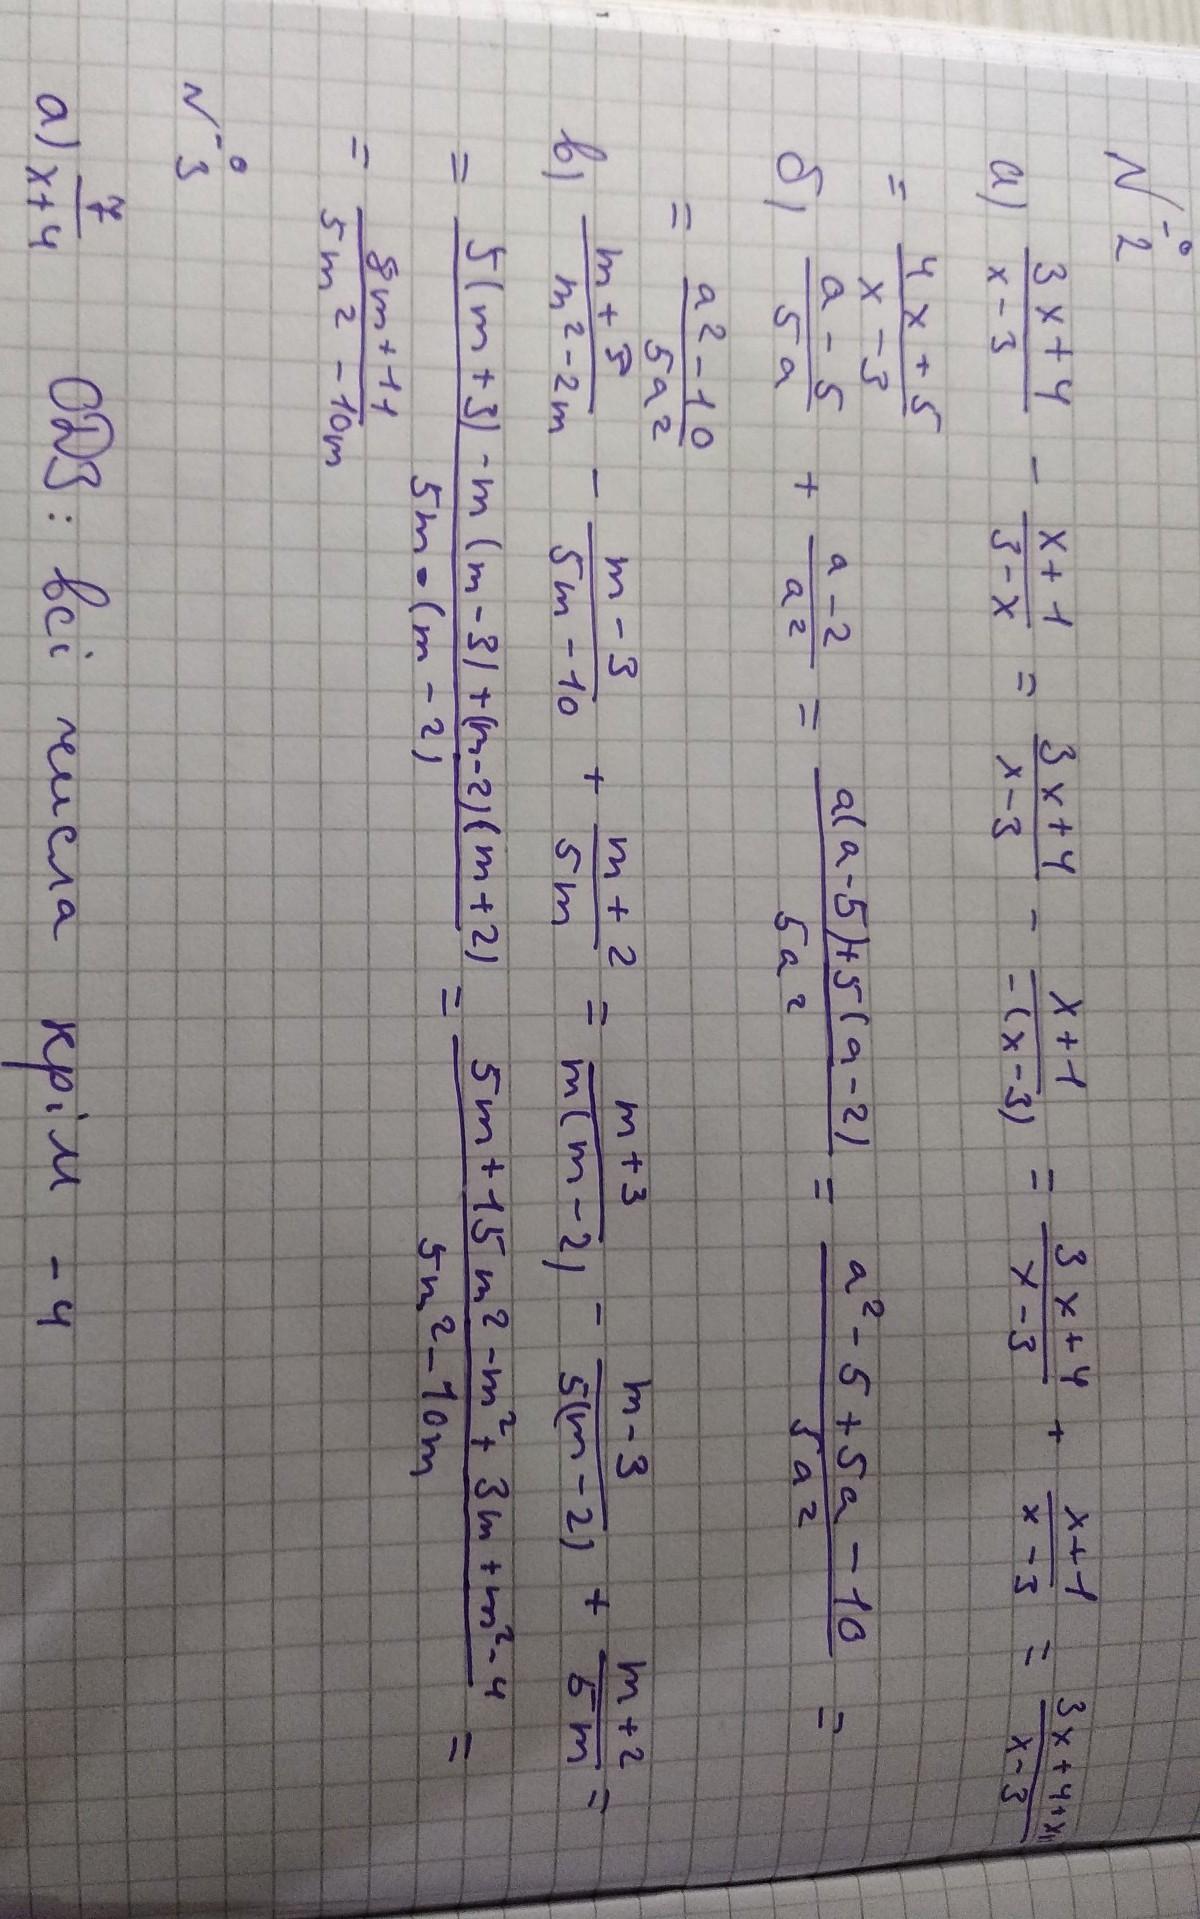 №2
а) (3x+4)/(x-3) - (x+1)/(3-x) = (3x+4)/(x-3) - (x+1)/(-(x-3)) = (3x+4)/(x-3) + (x+1)/(x-3) = (3x+4+x+1)/(x-3)
= (4x+5)/(x-3)
б) (a-5)/(5a) + (a-2)/(a²) = (a(a-5)+5(a-2))/(5a²) = (a²-5+5a-10)/(5a²) =
= (a²-10)/(5a²)
в) (m+3)/(m²-2m) - (m-3)/(5m-10) + (m+2)/(5m) = (m+3)/(m(m-2)) - (m-3)/(5(m-2)) + (m+2)/(5m) =
= (5(m+3)-m(m-3)+(m-2)(m+2))/(5m•(m-2)) = (5m+15m²-m²+3m+m²-4)/(5m²-10m) =
= (8m+11)/(5m²-10m)
№3
а) 7/(x+4) ОДЗ: всі числа крім -4